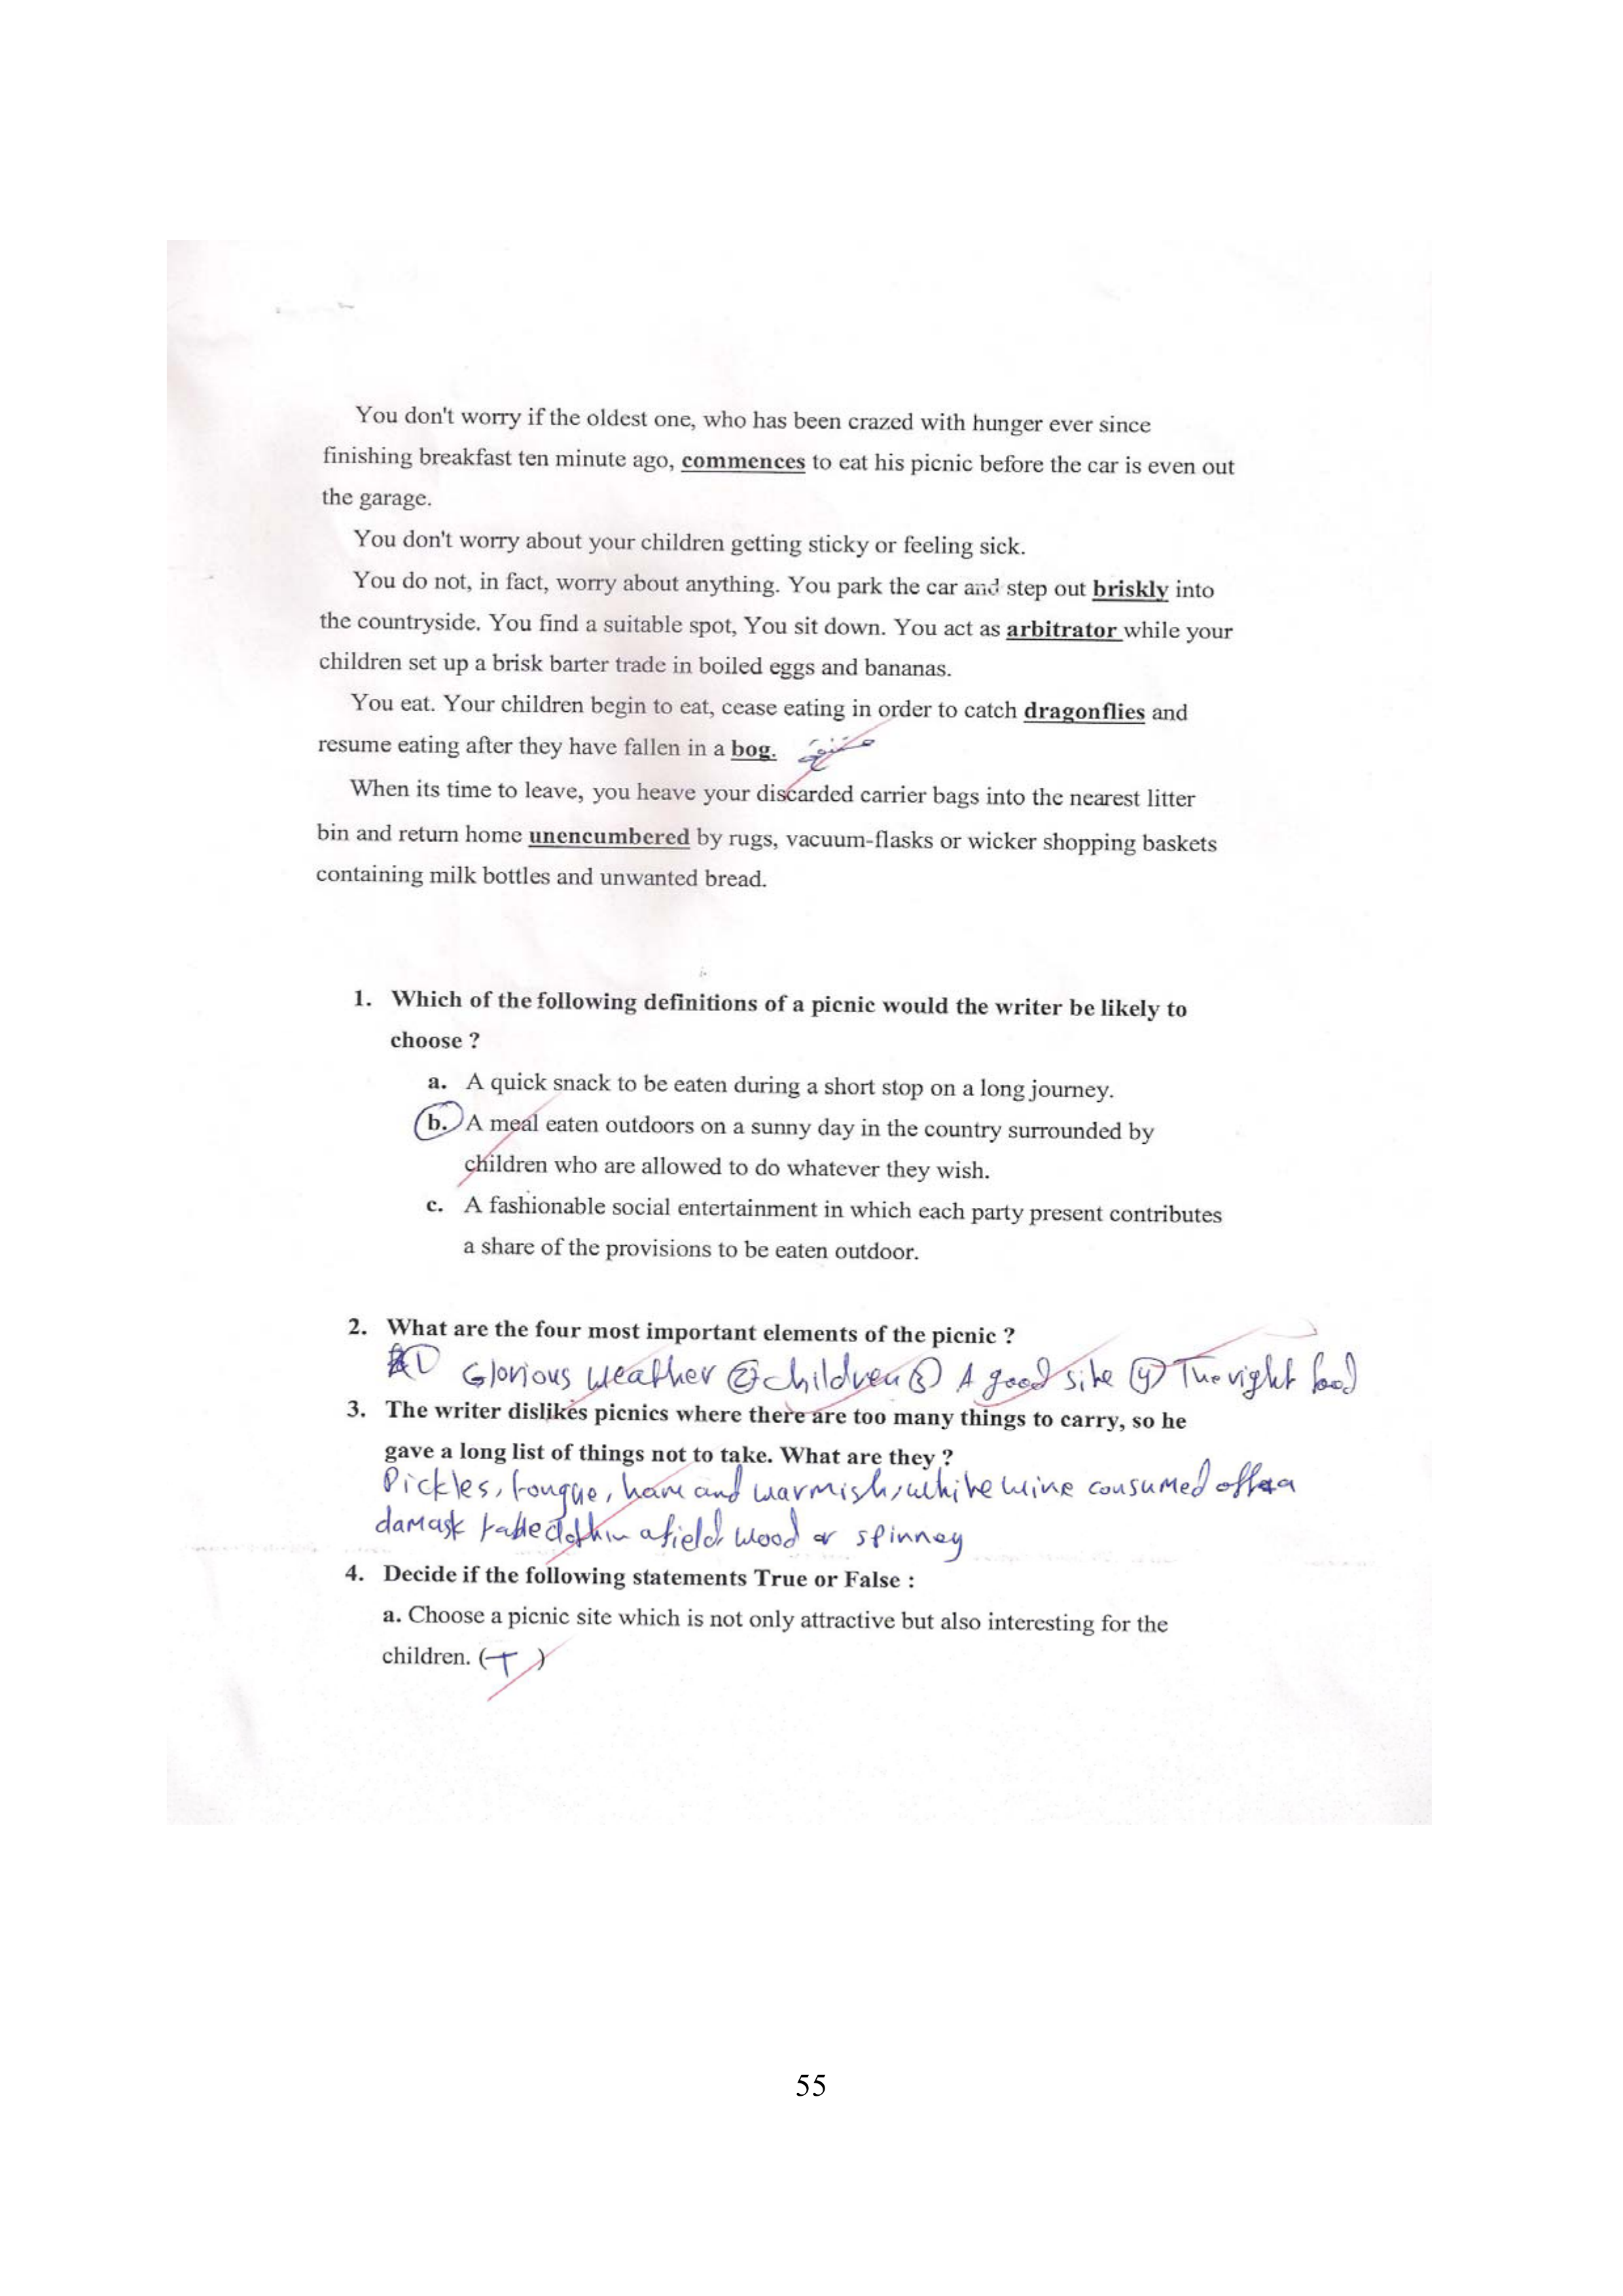 You don't worry if the oldest one, who has been crazed with hunger ever since
finishing breakfast ten minute ago, commences to eat his picnic before the car is even out
the garage.
You don't worry about your children getting sticky or feeling sick.
You do not, in fact, worry about anything. You park the car and step out briskly into
the countryside. You find a suitable spot, You sit down. You act as arbitrator while your
children set up a brisk barter trade in boiled eggs and bananas.
You eat. Your children begin to eat, cease eating in order to catch dragonflies and
resume eating after they have fallen in a bog.
When its time to leave, you heave your discarded carrier bags into the nearest litter
bin and return home unencumbered by rugs, vacuum-flasks or wicker shopping baskets
containing milk bottles and unwanted bread.
1. Which of the following definitions of a picnic would the writer be likely to
choose ?
a. A quick snack to be eaten during a short stop on a long journey.
b. A meal eaten outdoors on a sunny day in the country surrounded by
children who are allowed to do whatever they wish.
c. A fashionable social entertainment in which each party present contributes
a share of the provisions to be eaten outdoor.
2. What are the four most important elements of the picnic ?
1) Glorious weather 2) children 3) A good site 4) The right food
3. The writer dislikes picnics where there are too many things to carry, so he
gave a long list of things not to take. What are they ?
Pickles, tongue, ham and warmish, white wine consumed off a
damask table cloth in a field, wood or spinney
4. Decide if the following statements True or False :
a. Choose a picnic site which is not only attractive but also interesting for the
children. (T)
55